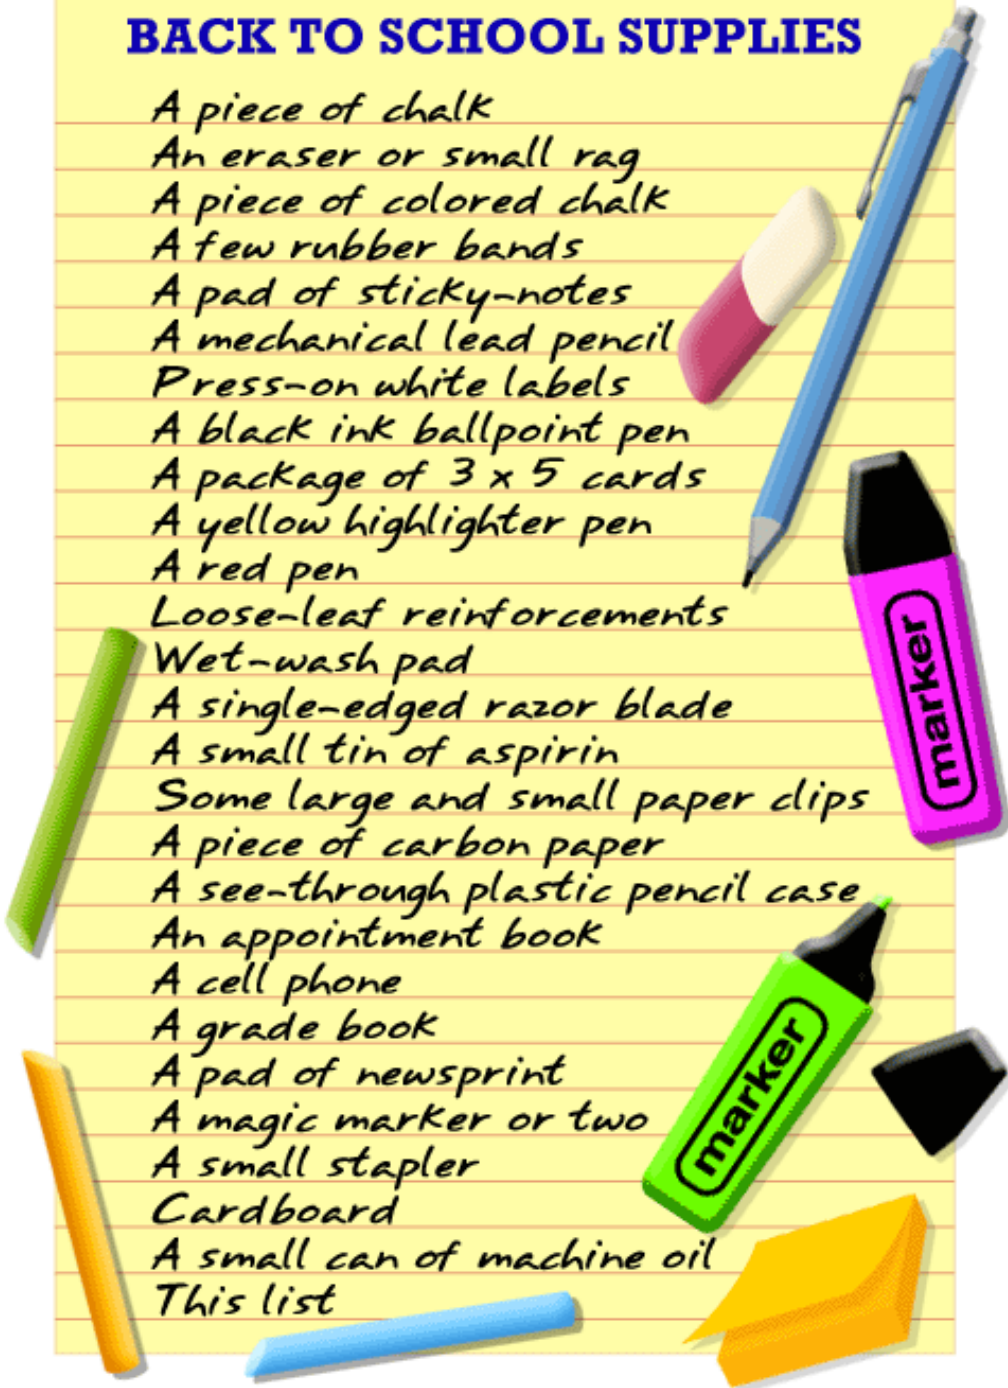 BACK TO SCHOOL SUPPLIES
A piece of chalk
An eraser or small rag
A piece of colored chalk
A few rubber bands
A pad of sticky-notes
A mechanical lead pencil
Press-on white labels
A black ink ballpoint pen
A package of 3 x 5 cards
A yellow highlighter pen
A red pen
Loose-leaf reinforcements
Wet-wash pad
A single-edged razor blade
A small tin of aspirin
Some large and small paper clips
A piece of carbon paper
A see-through plastic pencil case
An appointment book
A cell phone
A grade book
A pad of newsprint
A magic marker or two
A small stapler
Cardboard
A small can of machine oil
This list
marker
marker